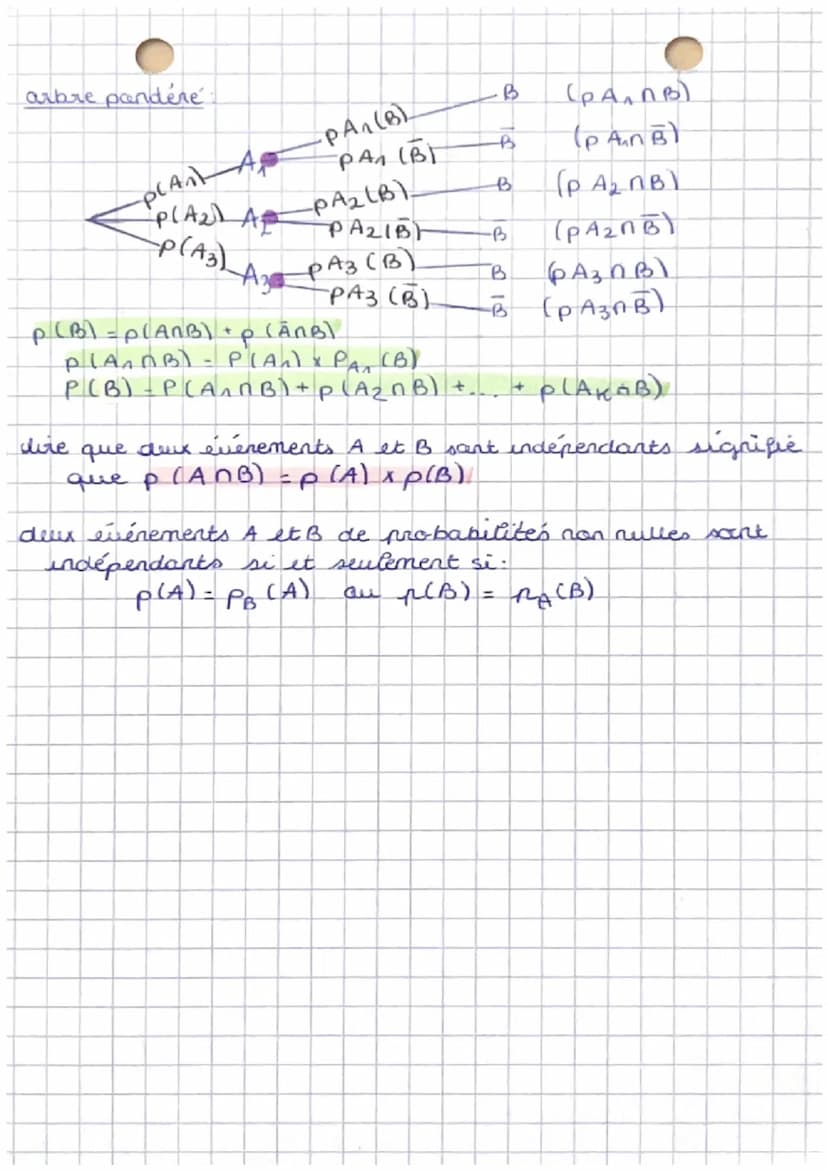 arbre pondéré :
pA₁(B) B (p A₁ ∩ B)
p(A₁) A₁ pA₁ (B̅) B̅ (p A₁∩ B̅)
p(A₂) A₂ pA₂(B) B (p A₂ ∩ B)
pA₂(B̅) B̅ (p A₂∩ B̅)
p(A₃) A₃ pA₃ (B) B (p A₃ ∩ B)
pA₃ (B̅) B̅ (p A₃∩ B̅)
p(B) = p(A∩B) + p (A̅∩B)
p(A₁∩B) = P(A₁) x P_A₁ (B)
P(B) = P(A₁∩B) + p(A₂∩B) + ... + p(A_K∩B)
dire que deux événements A et B sont indépendants signifie
que p (A∩B) = p (A) x p(B)
deux événements A et B de probabilités non nulles sont
indépendants si et seulement si :
p(A) = p_B (A) ou p(B) = p_A (B)